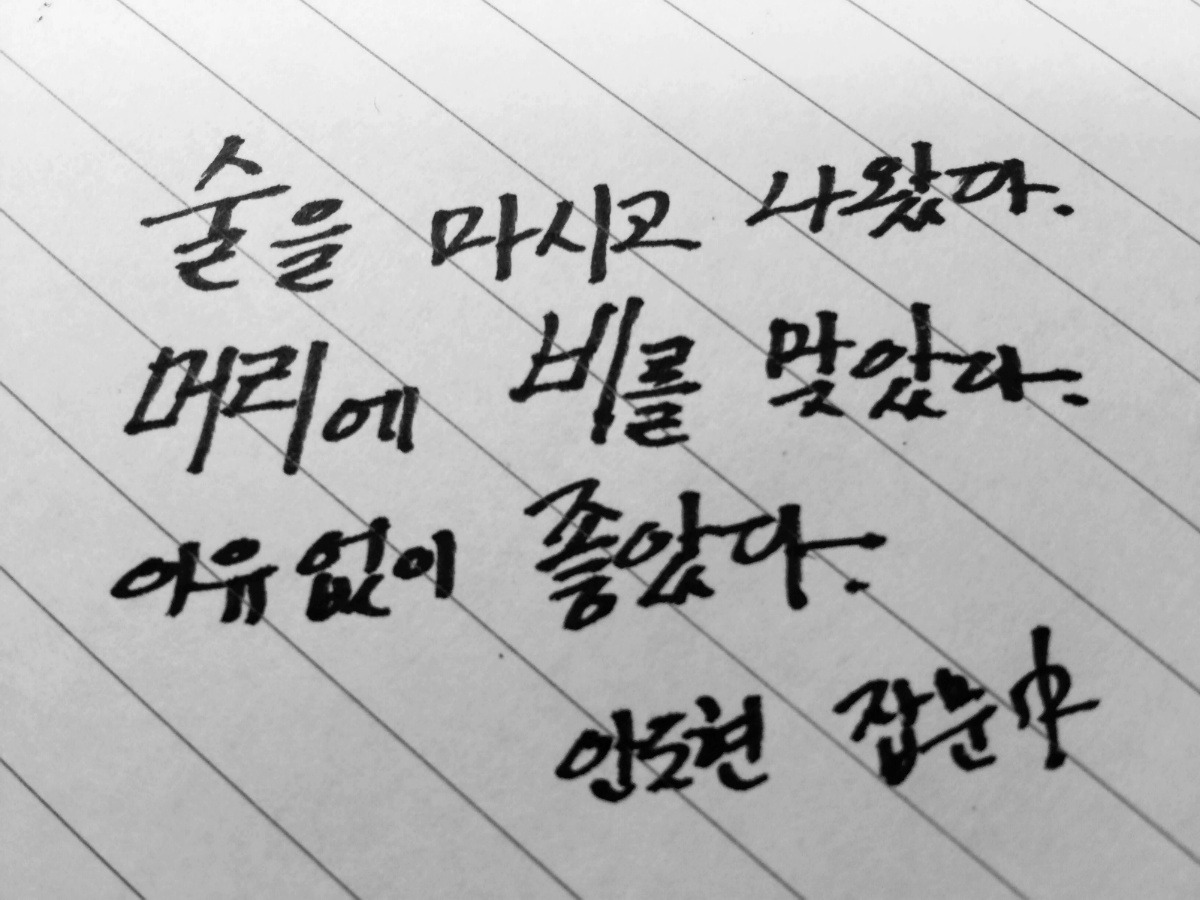 술을 마시고 나왔다.
머리에 비를 맞았다.
이유없이 좋았다.
안도현 잡문 中